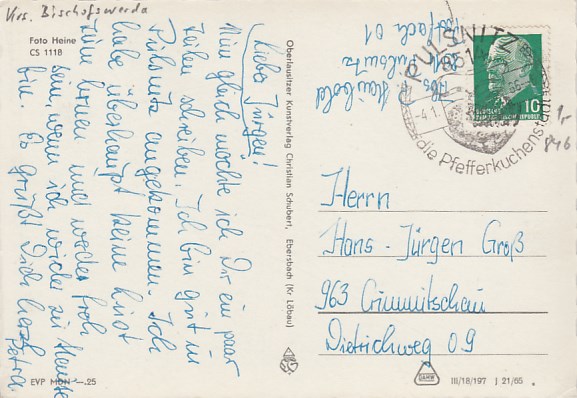 Krs. Bischofswerda
Foto Heine
CS 1118
Lieber Jürgen!
Nun gleich möchte ich Dir ein paar
Zeilen schreiben. Ich bin gut in
Pulsnitz angekommen. Ich
habe überhaupt keine Lust
zum lernen und werde froh
sein, wenn ich wieder zu Hause
bin. Es grüßt Dich herzl.
Petra.
EVP MDN —.25
Oberlausitzer Kunstverlag Christian Schubert, Ebersbach (Kr. Löbau)
Abs.
8514 Pulsnitz
Postfach 01
PULSNITZ
8514
-4.1.
die Pfefferkuchenstadt
DEUTSCHE
DEMOKRATISCHE REPUBLIK
10
1,-
846
Herrn
Hans-Jürgen Groß
963 Crimmitschau
Dietrichweg 09
III/18/197 J 21/65